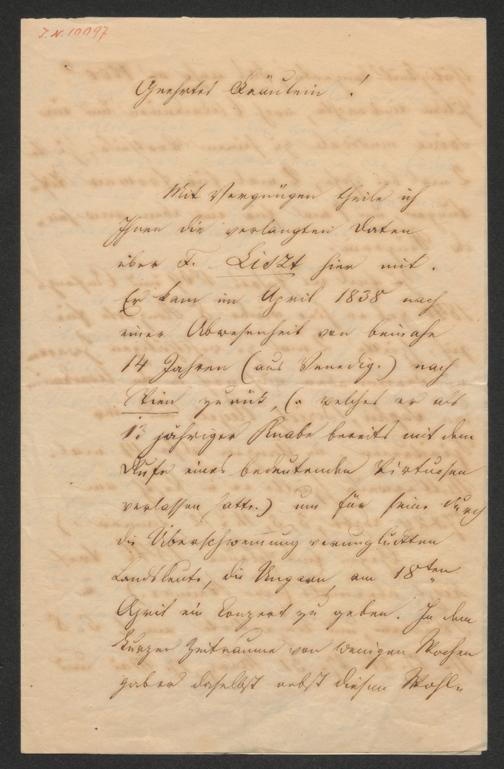 I. N. 10097
Geehrtes Fräulein !
Mit Vergnügen theile ich
Ihnen die verlangten Daten
über F. Liszt hier mit.
Er kam im April 1838 nach
einer Abwesenheit von beinahe
14 Jahren (aus Venedig.) nach
Wien zurück, ( welches er als
jähriger Knabe bereits mit dem
Rufe eines bedeutenden Virtuosen
verlassen hatte.) um für seine durch
die Überschwemmung verunglückten
Landsleute, die Ungarn, am 18ten
April ein Konzert zu geben. In dem
kurzen Zeitraume von wenigen Wochen
gab er daselbst nebst diesem Wohl-